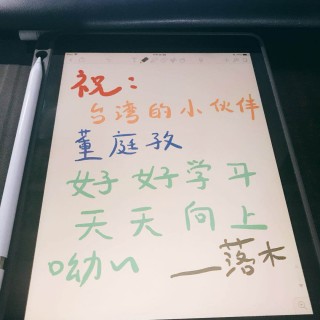 祝：
台湾的小伙伴
董庭孜
好好学习
天天向上
呦~ —落木